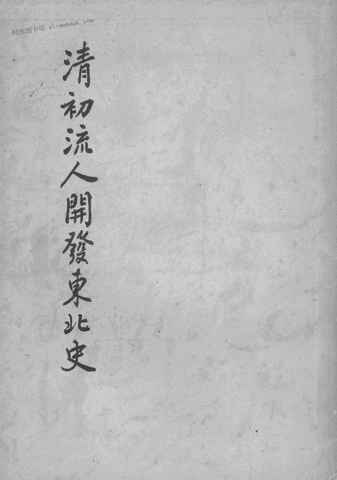 清初流人開發東北史